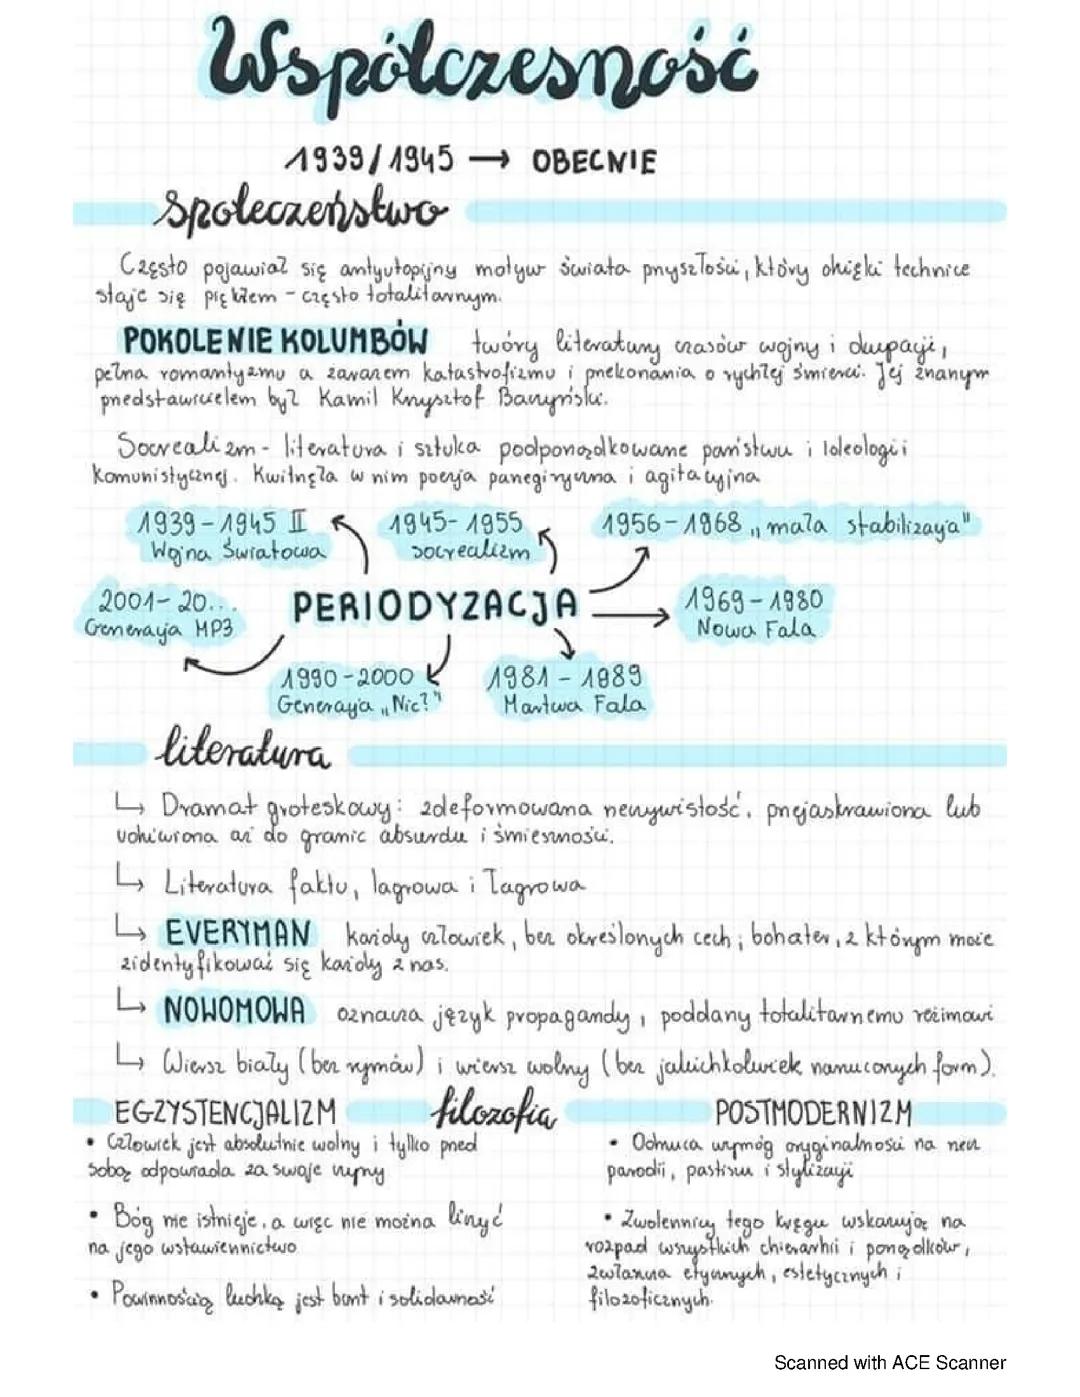 Współczesność
1939/1945 → OBECNIE
społeczeństwo
Często pojawiał się antyutopijny motyw świata przyszłości, który dzięki technice
staje się piekłem - często totalitarnym.
POKOLENIE KOLUMBÓW twórcy literatury czasów wojny i okupacji,
pełna romantyzmu a zarazem katastrofizmu i przekonania o rychłej śmierci. Jej znanym
przedstawicielem był Kamil Krzysztof Baczyński.
Socrealizm - literatura i sztuka podporządkowane państwu i ideologii
komunistycznej. Kwitnęła w nim poezja panegiryczna i agitacyjna
1939-1945 II
Wojna Światowa
1945-1955
socrealizm
1956-1968 „mała stabilizacja"
2001-20...
Generacja MP3
PERIODYZACJA
1969-1980
Nowa Fala
1990-2000
Generacja „Nic?"
1981-1989
Martwa Fala
literatura
↳ Dramat groteskowy: zdeformowana rzeczywistość, przejaskrawiona lub
udziwiona aż do granic absurdu i śmieszności.
↳ Literatura faktu, lagrowa i łagrowa
↳ EVERYMAN każdy człowiek, bez określonych cech; bohater, z którym może
zidentyfikować się każdy z nas.
↳ NOWOMOWA oznacza język propagandy, poddany totalitarnemu reżimowi
↳ Wiersz biały (bez rymów) i wiersz wolny (bez jakichkolwiek narzuconych form).
filozofia
EGZYSTENCJALIZM
• Człowiek jest absolutnie wolny i tylko przed
sobą odpowiada za swoje czyny
• Bóg nie istnieje, a więc nie można liczyć
na jego wstawiennictwo
• Powinnością ludzką jest bunt i solidarność
POSTMODERNIZM
• Odrzuca wymóg oryginalności na rzecz
parodii, pastiszu i stylizacji
• Zwolennicy tego kręgu wskazują na
rozpad wszystkich hierarhii i porządków,
zwłaszcza etycznych, estetycznych i
filozoficznych.
Scanned with ACE Scanner